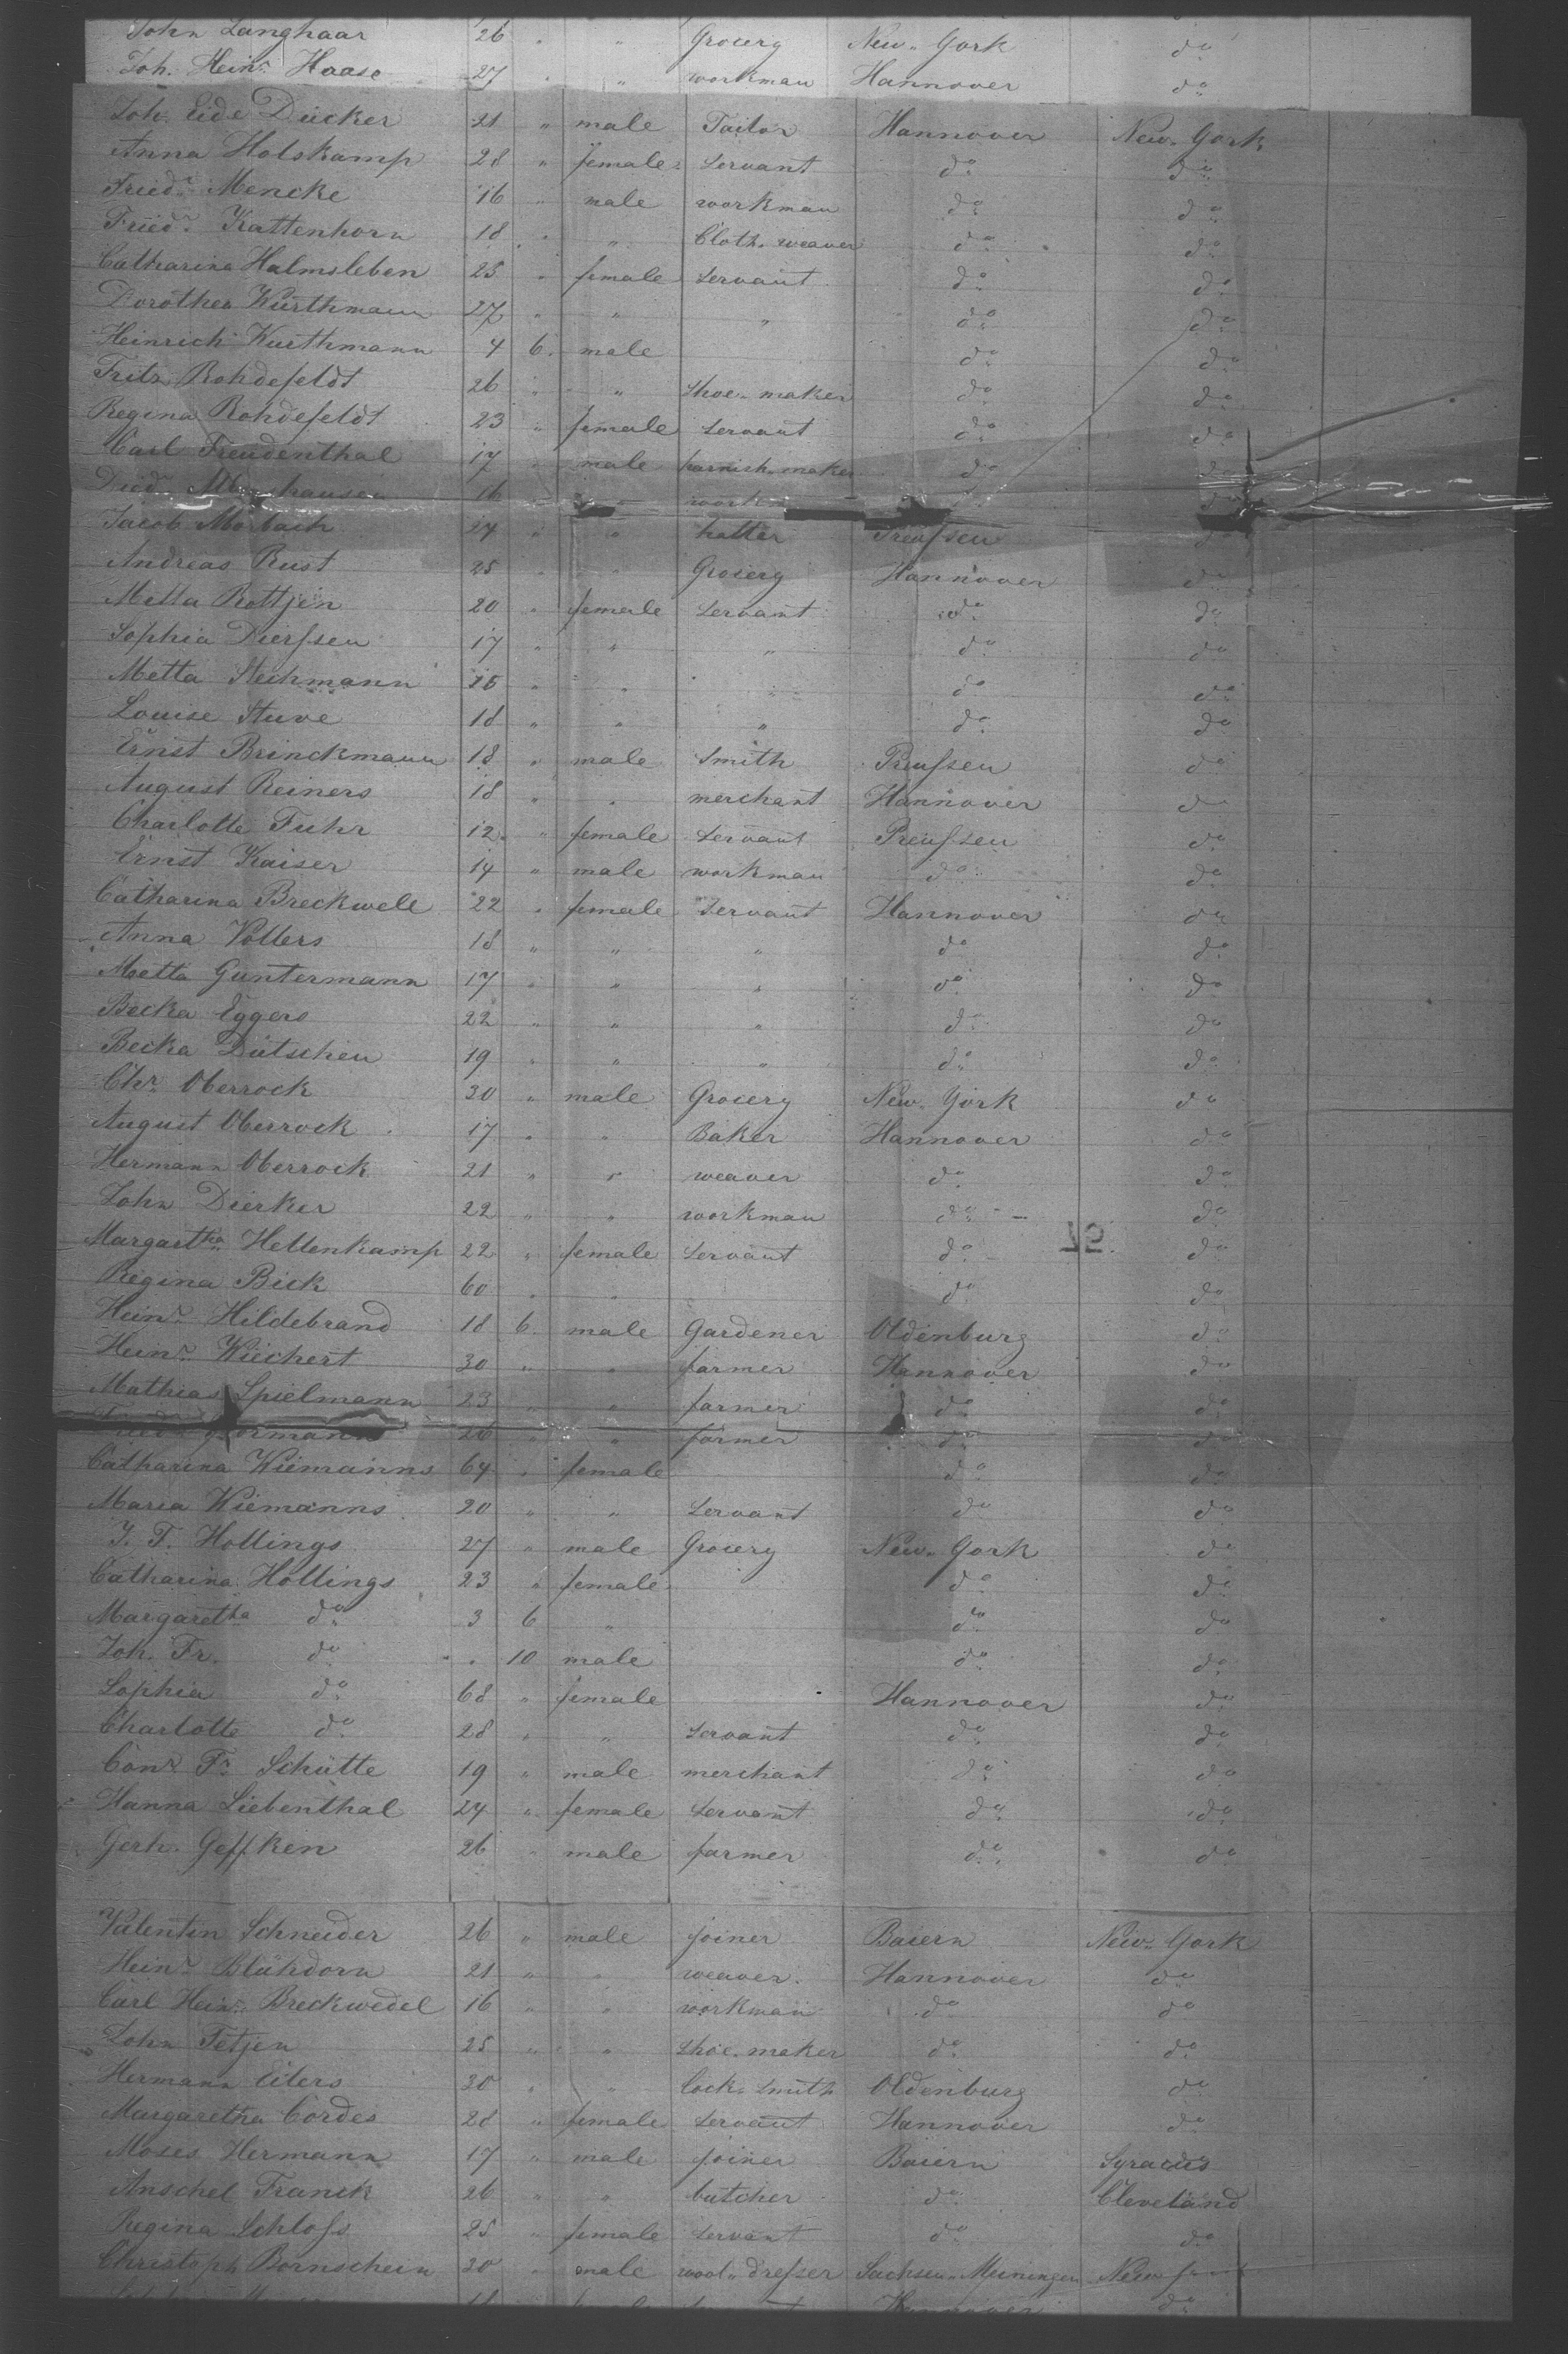 John Langhaar 26 " " Grocery New-York do
Joh. Heinr. Haase 27 " " workman Hannover do
Joh. Eide Dücker 21 " male Tailor Hannover New-York
Anna Holskamp 28 " female servant do do
Friedr. Mencke 16 " male workman do do
Friedr. Kattenhorn 18 " " Cloth-weaver do do
Catharina Halmsleben 25 " female servant do do
Dorothea Würthmann 27 " " " do do
Heinrich Würthmann 4 6 male do do
Fritz Rohdefeldt 26 " " shoe-maker do do
Regina Rohdefeldt 23 " female servant do do
Carl Freudenthal 17 " male harnish-maker do do
Died. 16 " " do
Jacob Morbach 24 " " hatter Preufsen do
Andreas Rust 25 " " Grocery Hannover do
Metta Rottjen 20 " female servant do do
Sophia Dierfsen 17 " " " do do
Metta Stechmann " " " do do
Louise Stuve 18 " " " do do
Ernst Brinckmann 18 " male smith Preufsen do
August Reiners 18 " " merchant Hannover do
Charlotte Fuhr 12 " female servant Preufsen do
Ernst Kaiser 14 " male workman do do
Catharina Breckwele 22 " female servant Hannover do
Anna Vollers 18 " " " do do
Metta Guntermann 17 " " " do do
Becka Eggers 22 " " " do do
Becka Dütschen 19 " " " do do
Chr. Oberrock 30 " male Grocery New-York do
August Oberrock 17 " " Baker Hannover do
Hermann Oberrock 21 " " weaver do do
John Dierker 22 " " workman do do
Margaretha Hellenkamp 22 " female servant do do
Regina Bick 60 " " do do
Heinr. Hildebrand 18 6 male Gardener Oldenburg do
Heinr. Wiechert 30 " " farmer Hannover do
Mathias Spielmann 23 " " farmer do do
26 " " farmer do do
Catharina Wiemanns 64 " female do do
Maria Wiemanns 20 " " servant do do
J. F. Hollings 27 " male Grocery New-York do
Catharina Hollings 23 " female do do
Margaretha do 3 6 " do do
Joh. Fr. do " 10 male do do
Sophia do 68 " female Hannover do
Charlotte do 28 " " servant do do
Conr. Fr. Schütte 19 " male merchant do do
Hanna Liebenthal 24 " female servant do do
Gerh. Geffken 26 " male farmer do do
Valentin Schneider 26 " male joiner Baiern New-York
Heinr. Blühdorn 21 " " weaver Hannover do
Carl Heinr. Breckwedel 16 " " workman do do
John Tetjen 25 " " shoe-maker do do
Hermann Eilers 30 " " Lock-Smith Oldenburg do
Margaretha Cordes 28 " female servant Hannover do
Moses Hermann 17 " male joiner Baiern Syracus
Anschel Franck 26 " " butcher do Cleveland
Regina Schlofs 25 " female servant do do
Christoph Bornschein 30 " male wool-drefser Sachsen-Meiningen New
18 Hannover do